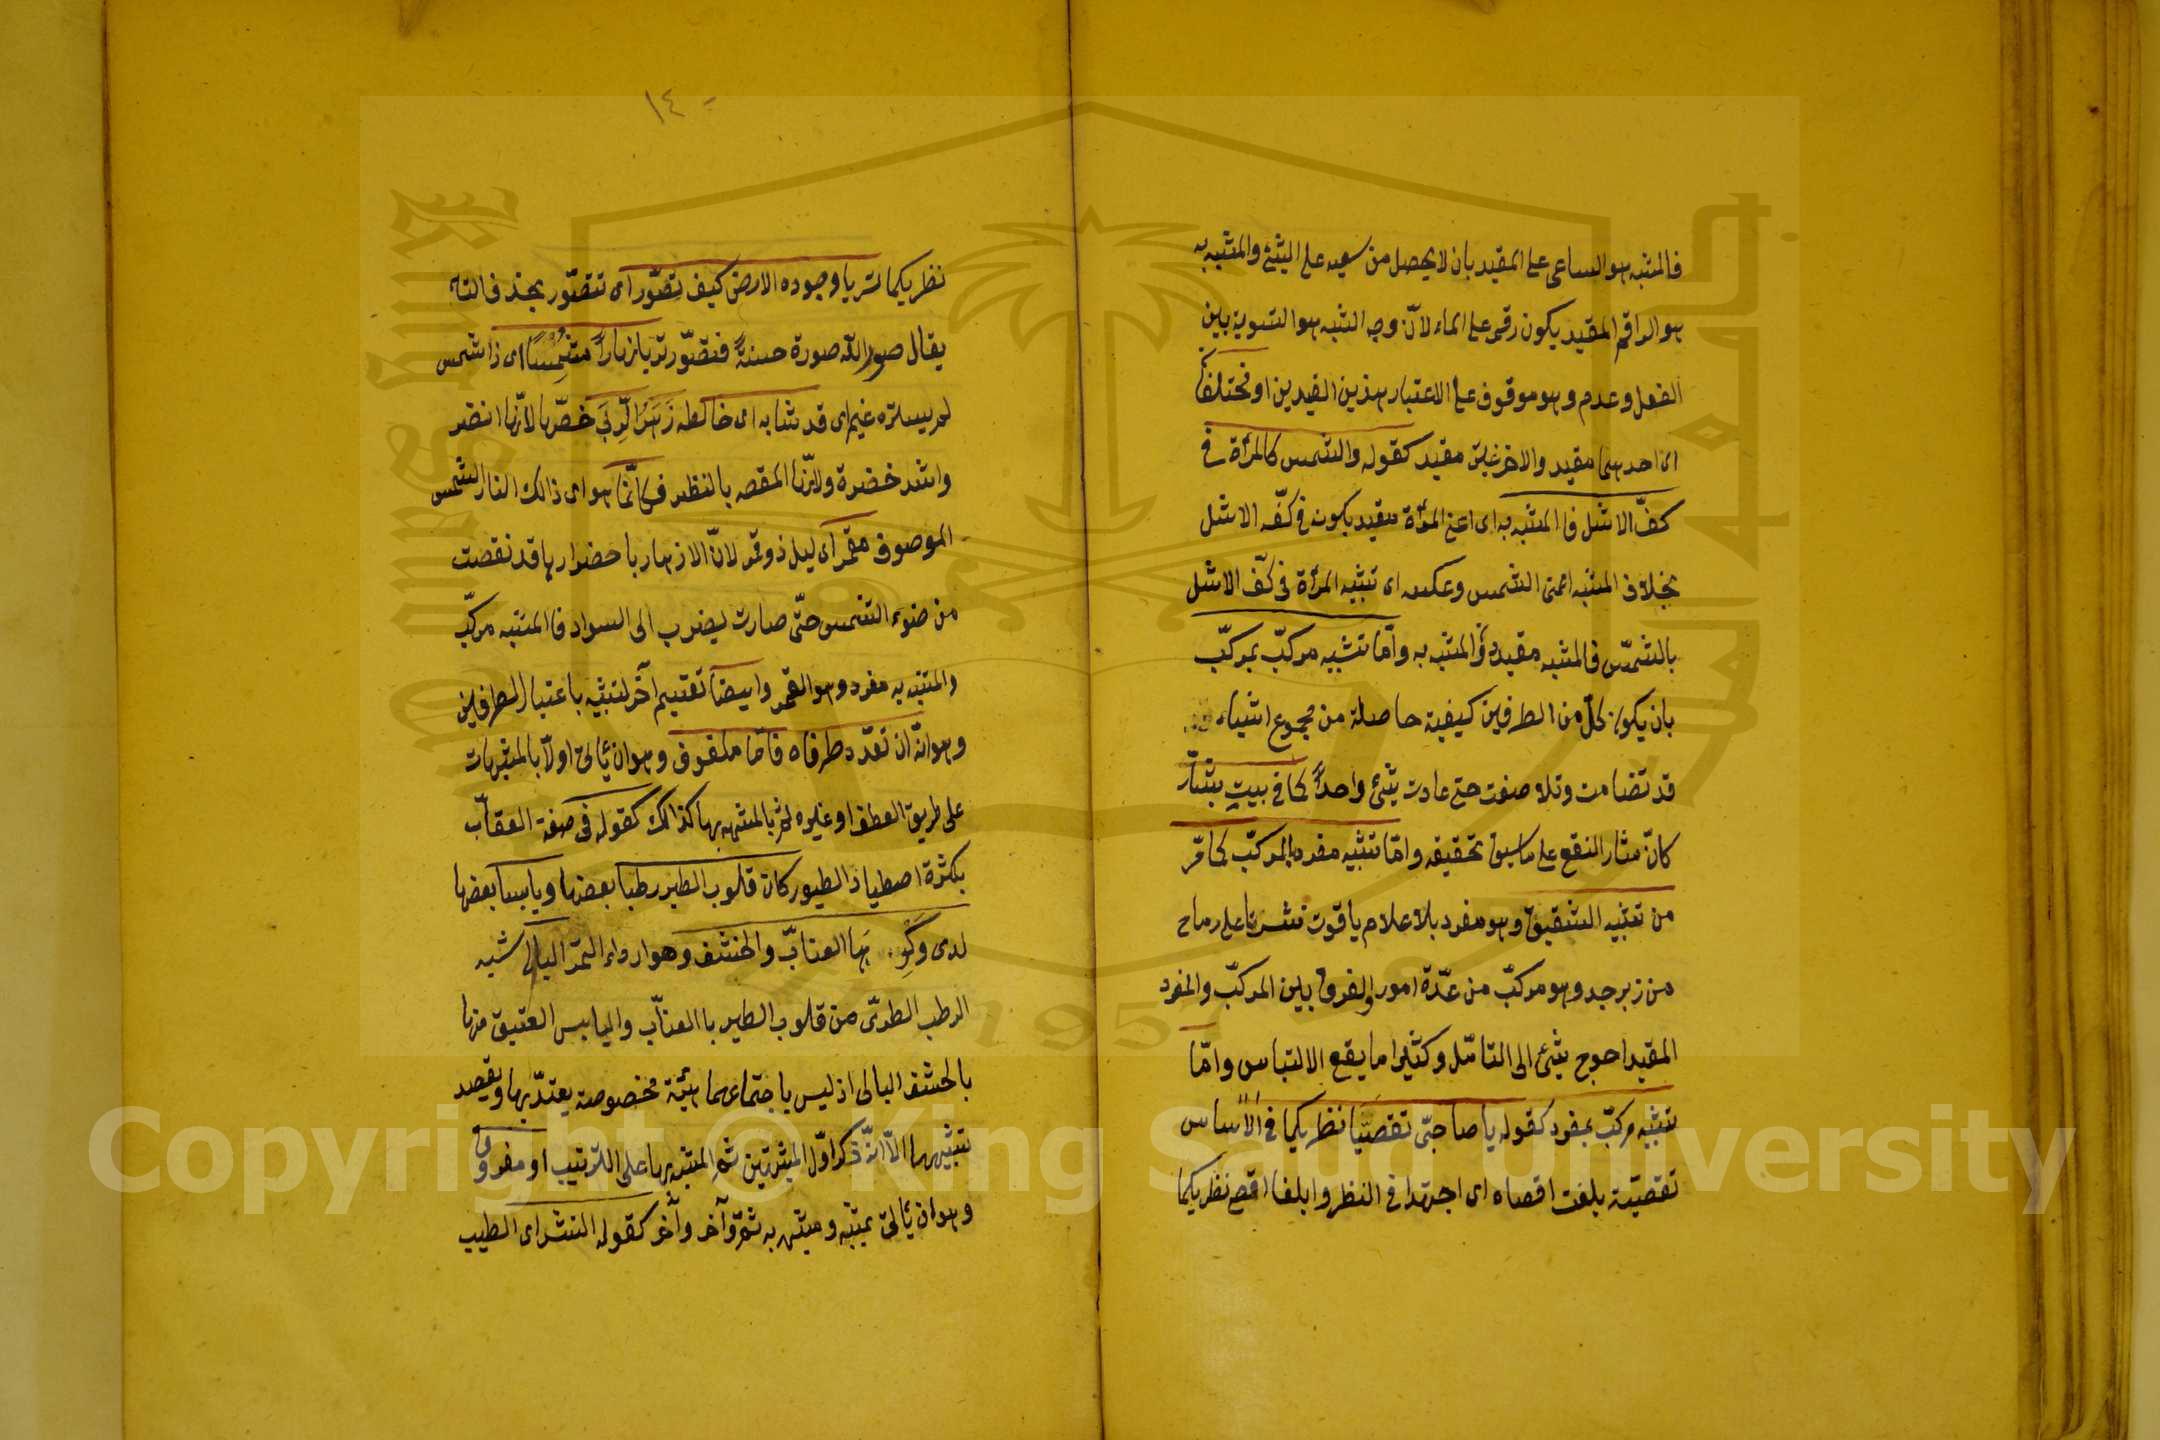 فالمشبه هو الساعى على المقيد بان لا يحصل من سعيه على الشئ والمشبه به
هو الراقم المقيد بكون رقمه على الماء لانّ وجه الشبه هو التسوية بين
الفعل وعدم وهو موقوف على الاعتبار هذين القيدين او مختلفان
اى احدهما مقيد والاخر غير مقيد كقوله والشمس كالمرآة فى
كفّ الاشل فالمشبه به اى اعنى المرآة مقيد بكون فى كفّه الاشل
بخلاف المشبه اعنى الشمس وعكسه اى تشبيه المرآة فى كفّ الاشل
بالشمس فالمشبه مقيد دون المشبه به وامّا تشبيه مركّب بمركّب
بان يكون كلّ من الطرفين كيفية حاصلة من مجموع اشياء
قد تضامت وتلاصقت حتى عادت شئ واحدًا كما فى بيت بشّار
كانّ مثار النقع على ما سبق تحقيقه وامّا تشبيه مفرد بالمركّب كما مرّ
من تشبيه الشقيق وهو مفرد بلاعلام ياقوت نشرنا على رماح
من زبرجد وهو مركّب من عدّة امور والفرق بين المركّب والمفرد
المقيد احوج شئ الى التامّل وكثيرا ما يقع الالتباس وامّا
تشبيه مركّب بمفرد كقوله يا صاحبّى تقصّيا نظريكما فى الاساس
تقصّيته بلغت اقصاه اى اجتهدا فى النظر وابلغا اقصى نظريكما
١٤٠
نظريكما تريا وجوده الارض كيف تصوّر اى تتصوّر بحذف التاء
يقال صور الله صورة حسنةً فتصوّر تريا نهارًا مشمسًا اى ذا شمس
لم يستره غيم اى قد شابه اى خالطه زهر الربى خصّها لانّها انضر
واشد خضرة ولانّها المقصد بالنظر فكانّما هو اى ذالك النار الشمس
الموصوف مقمر اى ليل ذو قمر لانّ الازهار باحضرارها قد نقصت
من ضوء الشمس حتّى صارت يضرب الى السواد فالمشبه مركّب
والمشبه به مفرد وهو القمر وايضا تقسيم آخر لتشبيه باعتبار الطرفين
وهو انّه ان تعدّد طرفاه فامّا ملفوف وهو ان ياتى اولا بالمشبهات
على طريق العطف او غيره ثم بالمشبه بها كذالك كقوله فى صفة العقاب
بكثرة اصطياد الطيور كان قلوب الطير رطبا بعضها ويابسا بعضها
لدى وكر ها العنابّ والحشف وهو ارداء التمر البالى شبه
الرطب الطرىّ من قلوب الطير بالعنّاب واليابس العتيق منها
بالحشف البالى اذ ليس باجتماعهما هيئة مخصوصة يعتدّ بها ويقصد
تشبيهها الّا انّه ذكر اوّل المشبهين ثم المشبه بها على الترتيب او مفروق
وهو ان ياتى بمشبه ومشبه به ثمّ وآخر وآخر كقوله النشر اى الطيب
Copyright © King Saud University
1957